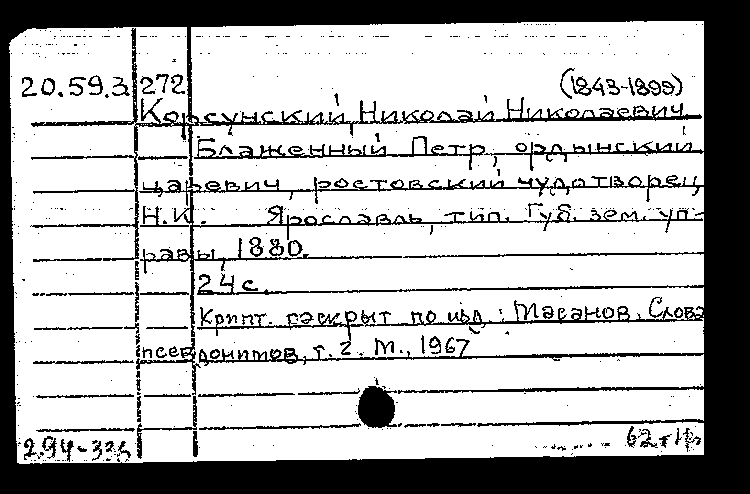 20.59.3 272 (1843-1899)
Корсунский, Николай Николаевич
Блаженный Петр, ордынский
царевич, ростовский чудотворец
Н.К. Ярославль, тип. Губ. зем. уп-
равы, 1880.
24 с.
Крипт. раскрыт по изд.: Масанов. Слова
псевдонимов, т. 2. М., 1967
2.94-336